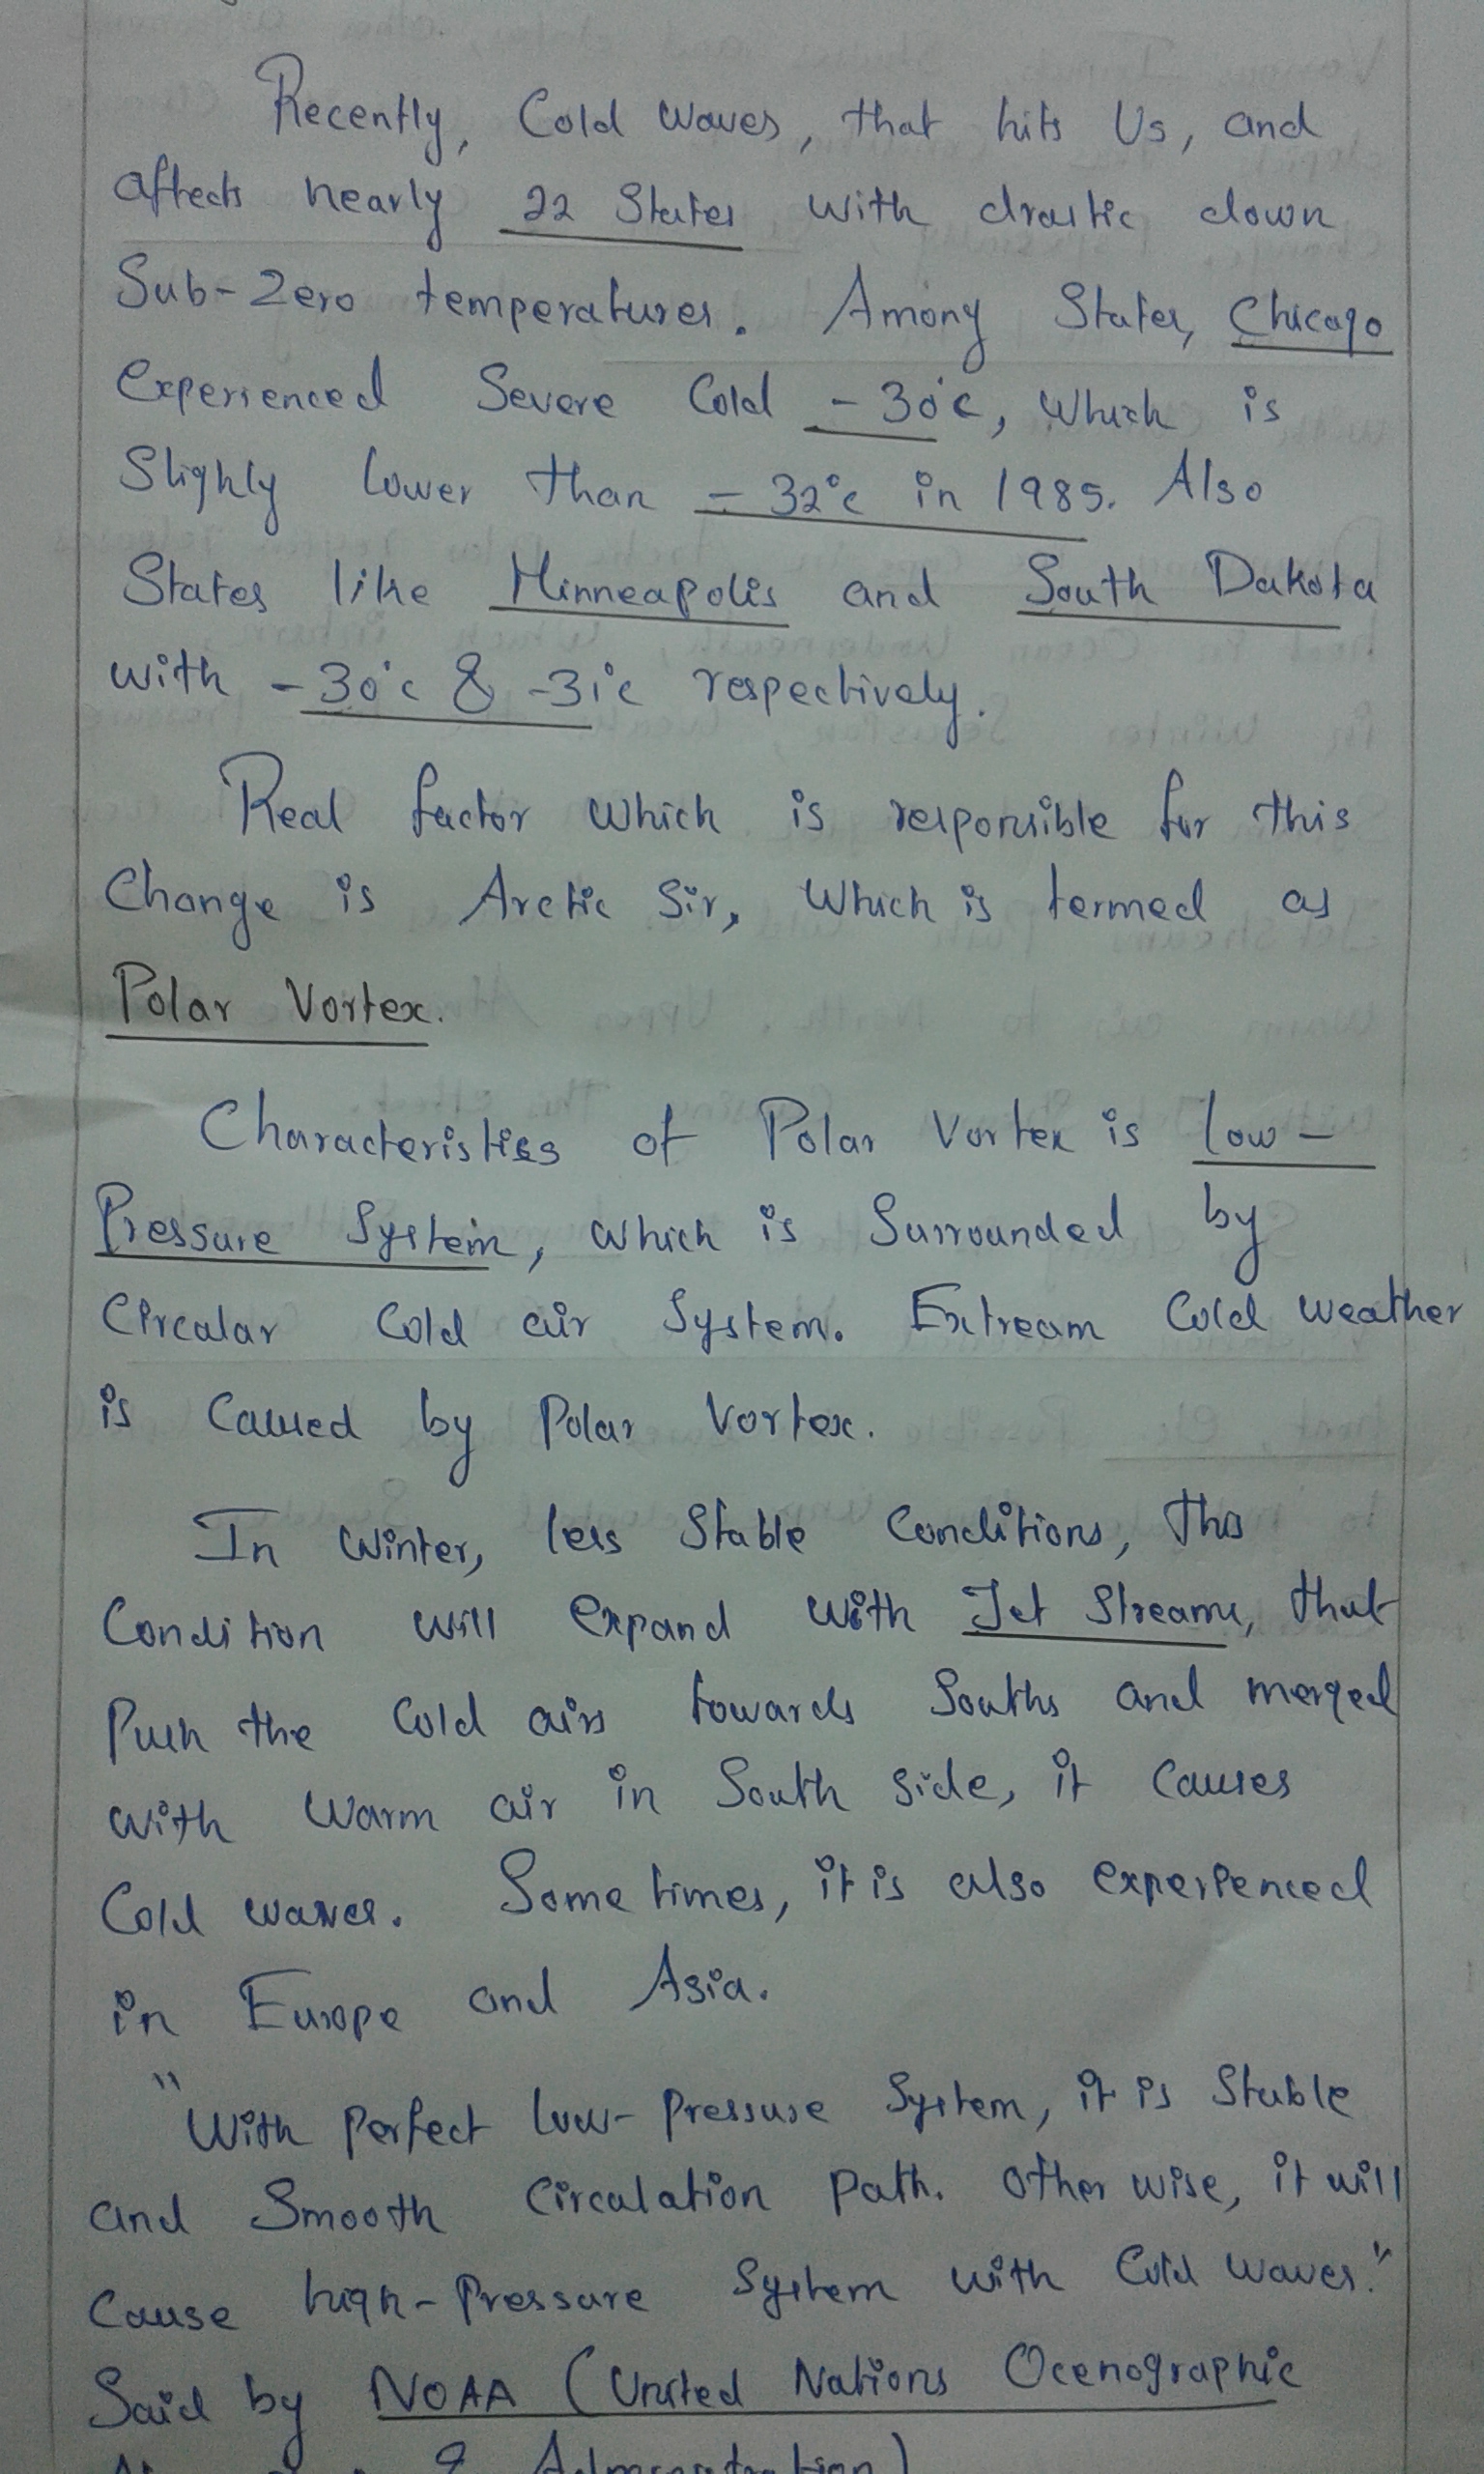 Recently, Cold waves, that hits Us, and
affects nearly 22 States with drastic down
Sub-Zero temperatures. Among States, Chicago
experienced Severe Cold -30°c, which is
Slighly lower than -32°c in 1985. Also
States like Minneapolis and South Dakota
with -30°c & -31°c respectively.
Real factor which is responsible for this
Change is Arctic Sir, which is termed as
Polar Vortex.
Characteristics of Polar Vortex is low-
Pressure System, which is Surrounded by
Circular Cold air System. Extream Cold weather
is Caused by Polar Vortex.
In Winter, less Stable Conditions, this
Condition will expand with Jet Streams, that
Push the Cold airs towards Souths and merged
with warm air in South side, it causes
Cold waves. Some times, it is also experienced
in Europe and Asia.
"With perfect low-pressure System, it is Stable
and Smooth Circulation Path. Other wise, it will
Cause high-Pressure System with Cold waves."
Said by NOAA (United Nations Ocenographic
& Administration)